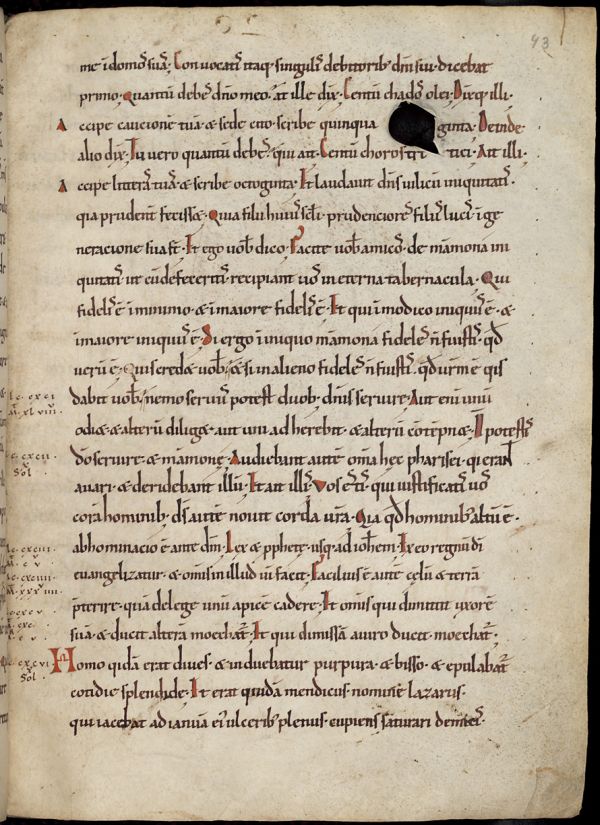 43
me i domo sua; Conuocatis itaq; singulis debitorib; dni sui. dicebat
primo. quantu debes dno meo. at ille dix. Centu chados olei. Dixq; illi.
Accipe cautione tua. & sede cito scribe quinqua ginta. Deinde
alio dix. Tu uero quantu debes. qui ait. Centu choros tri tici. Ait illi.
Accipe litteras tuas & scribe octoginta. Et laudauit dns uilicu iniquitatis.
qia prudent fecisset. Quia filii huius scli prudenciores filiis lucis i ge
neracione sua st. Et ego uob dico. Facite uob amicos de mamona ini
quitatis. ut cu defeceritis. recipiant uos in eterna tabernacula. Qui
fidelis e i minimo. & i maiore fidelis e. Et qui i modico iniquus e. &
i maiore iniquus e. Si ergo i iniquo mamona fideles n fuistis. qd
ueru e. Quis credet uob. & si in alieno fideles n fuistis. qd urm e quis
dabit uob. nemo seruus potest duob; dnis seruire. Aut eni unu
odiet & alteru diliget. aut uni adherebit. & alteru contepnet. N potestis
do seruire. & mamone. Audiebant aute oma hec pharisei. qui erant
auari. & deridebant illu. Et ait illis. Vos estis. qui iustificatis uos
cora hominib;. ds aute nouit corda ura. Quia qd hominib; altu e.
abhominacio e ante dm. Lex & pphete. usq; ad iohem. Ex eo regnu di
euangelizatur. & omis in illud uim facit. Facilius e aute celu & terra
pterire. qua de lege unu apice cadere. Et omis qui dimittit uxore
sua. & ducit altera moechat. Et qui dimissa a uiro ducit moechat.
Homo quida erat diues. & induebatur purpura & bisso. & epulabat
cotidie splendide. Et erat quida mendicus nomine lazarus.
qui iacebat ad ianua ei ulcerib; plenus. cupiens saturari de micis.